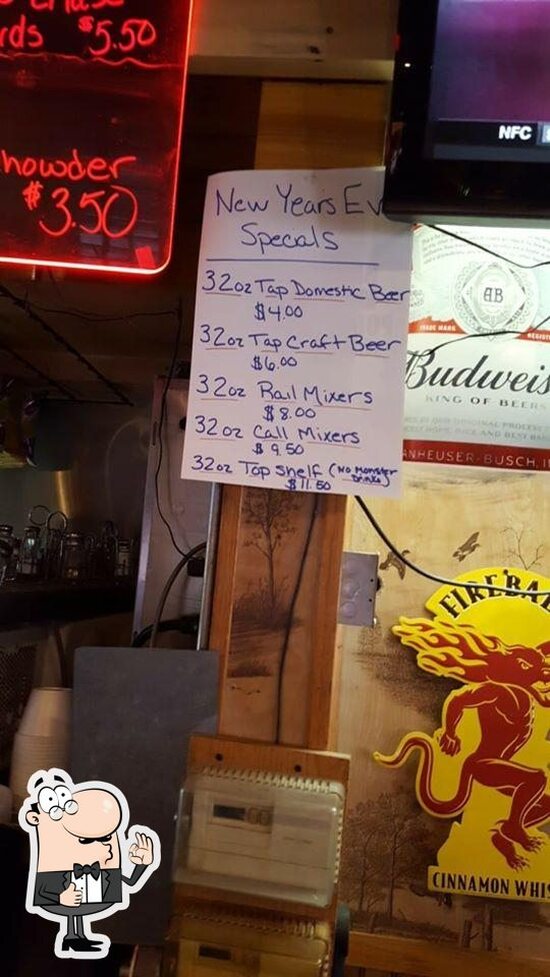 rds $5.50
howder
$3.50
NFC
New Years Ev
Specals
32oz Tap Domestic Beer
$4.00
32oz Tap Craft Beer
$6.00
32oz Rail Mixers
$8.00
32oz Call Mixers
$9.50
32oz Top Shelf (No Monster
Drinks)
$11.50
AB
TRADE MARK
REGIST
Budweis
KING OF BEERS
ANHEUSER-BUSCH, I
FIREBA
CINNAMON WHIS